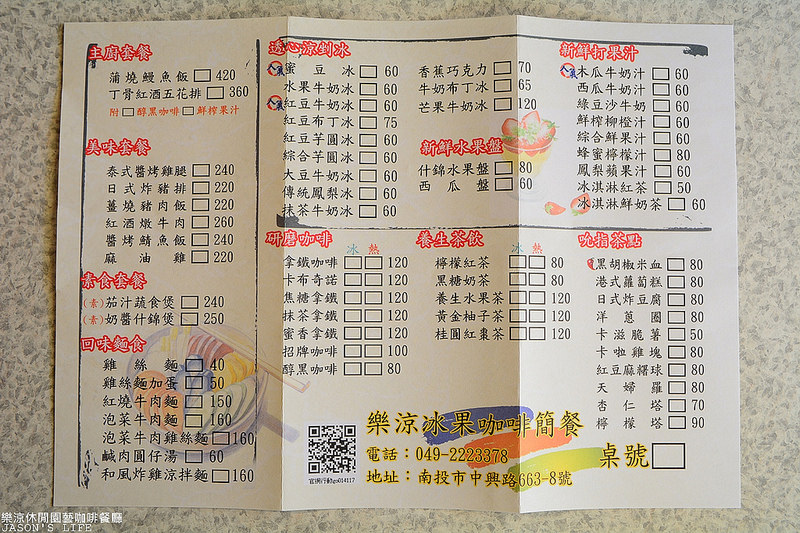 主廚套餐
蒲燒鰻魚飯 420
丁骨紅酒五花排 360
附 醇黑咖啡 鮮榨果汁
美味套餐
泰式醬烤雞腿 240
日式炸豬排 220
薑燒豬肉飯 220
紅酒燉牛肉 260
醬烤鯖魚飯 240
麻油雞 220
素食套餐
(素)茄汁蔬食煲 240
(素)奶醬什錦煲 250
回味麵食
雞絲麵 40
雞絲麵加蛋 50
紅燒牛肉麵 150
泡菜牛肉麵 160
泡菜牛肉雞絲麵 160
鹹肉圓仔湯 60
和風炸雞涼拌麵 160
透心涼剉冰
蜜豆冰 60
水果牛奶冰 60
紅豆牛奶冰 60
紅豆布丁冰 75
紅豆芋圓冰 60
綜合芋圓冰 60
大豆牛奶冰 60
傳統鳳梨冰 60
抹茶牛奶冰 60
香蕉巧克力 70
牛奶布丁冰 65
芒果牛奶冰 120
新鮮水果盤
什錦水果盤 80
西瓜盤 60
新鮮打果汁
木瓜牛奶汁 60
西瓜牛奶汁 60
綠豆沙牛奶 60
鮮榨柳橙汁 60
綜合鮮果汁 60
蜂蜜檸檬汁 80
鳳梨蘋果汁 60
冰淇淋紅茶 50
冰淇淋鮮奶茶 60
研磨咖啡
冰 熱
拿鐵咖啡 120
卡布奇諾 120
焦糖拿鐵 120
抹茶拿鐵 120
蜜香拿鐵 120
招牌咖啡 100
醇黑咖啡 80
養生茶飲
冰 熱
檸檬紅茶 80
黑糖奶茶 80
養生水果茶 120
黃金柚子茶 120
桂圓紅棗茶 120
吮指茶點
黑胡椒米血 80
港式蘿蔔糕 80
日式炸豆腐 80
洋蔥圈 80
卡滋脆薯 50
卡啦雞塊 80
紅豆麻糬球 80
天婦羅 80
杏仁塔 70
檸檬塔 90
樂涼冰果咖啡簡餐
電話：049-2223378
地址：南投市中興路663-8號
桌號
樂涼休閒園藝咖啡餐廳
JASON'S LIFE